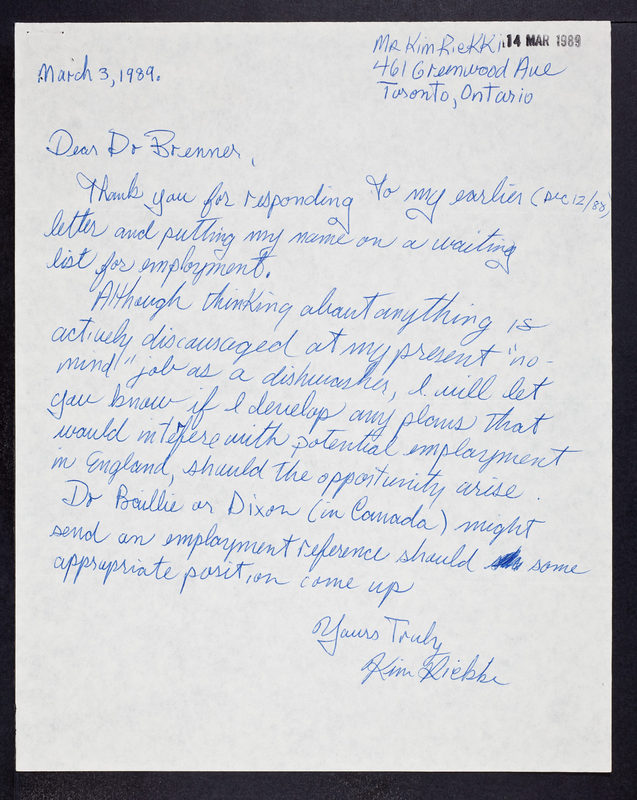 Mr Kim Riekki
14 MAR 1989
March 3, 1989.
461 Greenwood Ave
Toronto, Ontario
Dear Dr Brenner,
Thank you for responding to my earlier (Dec 12/88)
letter and putting my name on a waiting
list for employment.
Although thinking about anything is
actively discouraged at my present "no-
mind" job as a dishwasher, I will let
you know if I develop any plans that
would intefere with potential employment
in England, should the opportunity arise.
Dr Baillie or Dixon (in Canada) might
send an employment reference should some
appropriate position come up
Yours Truly
Kim Riekki